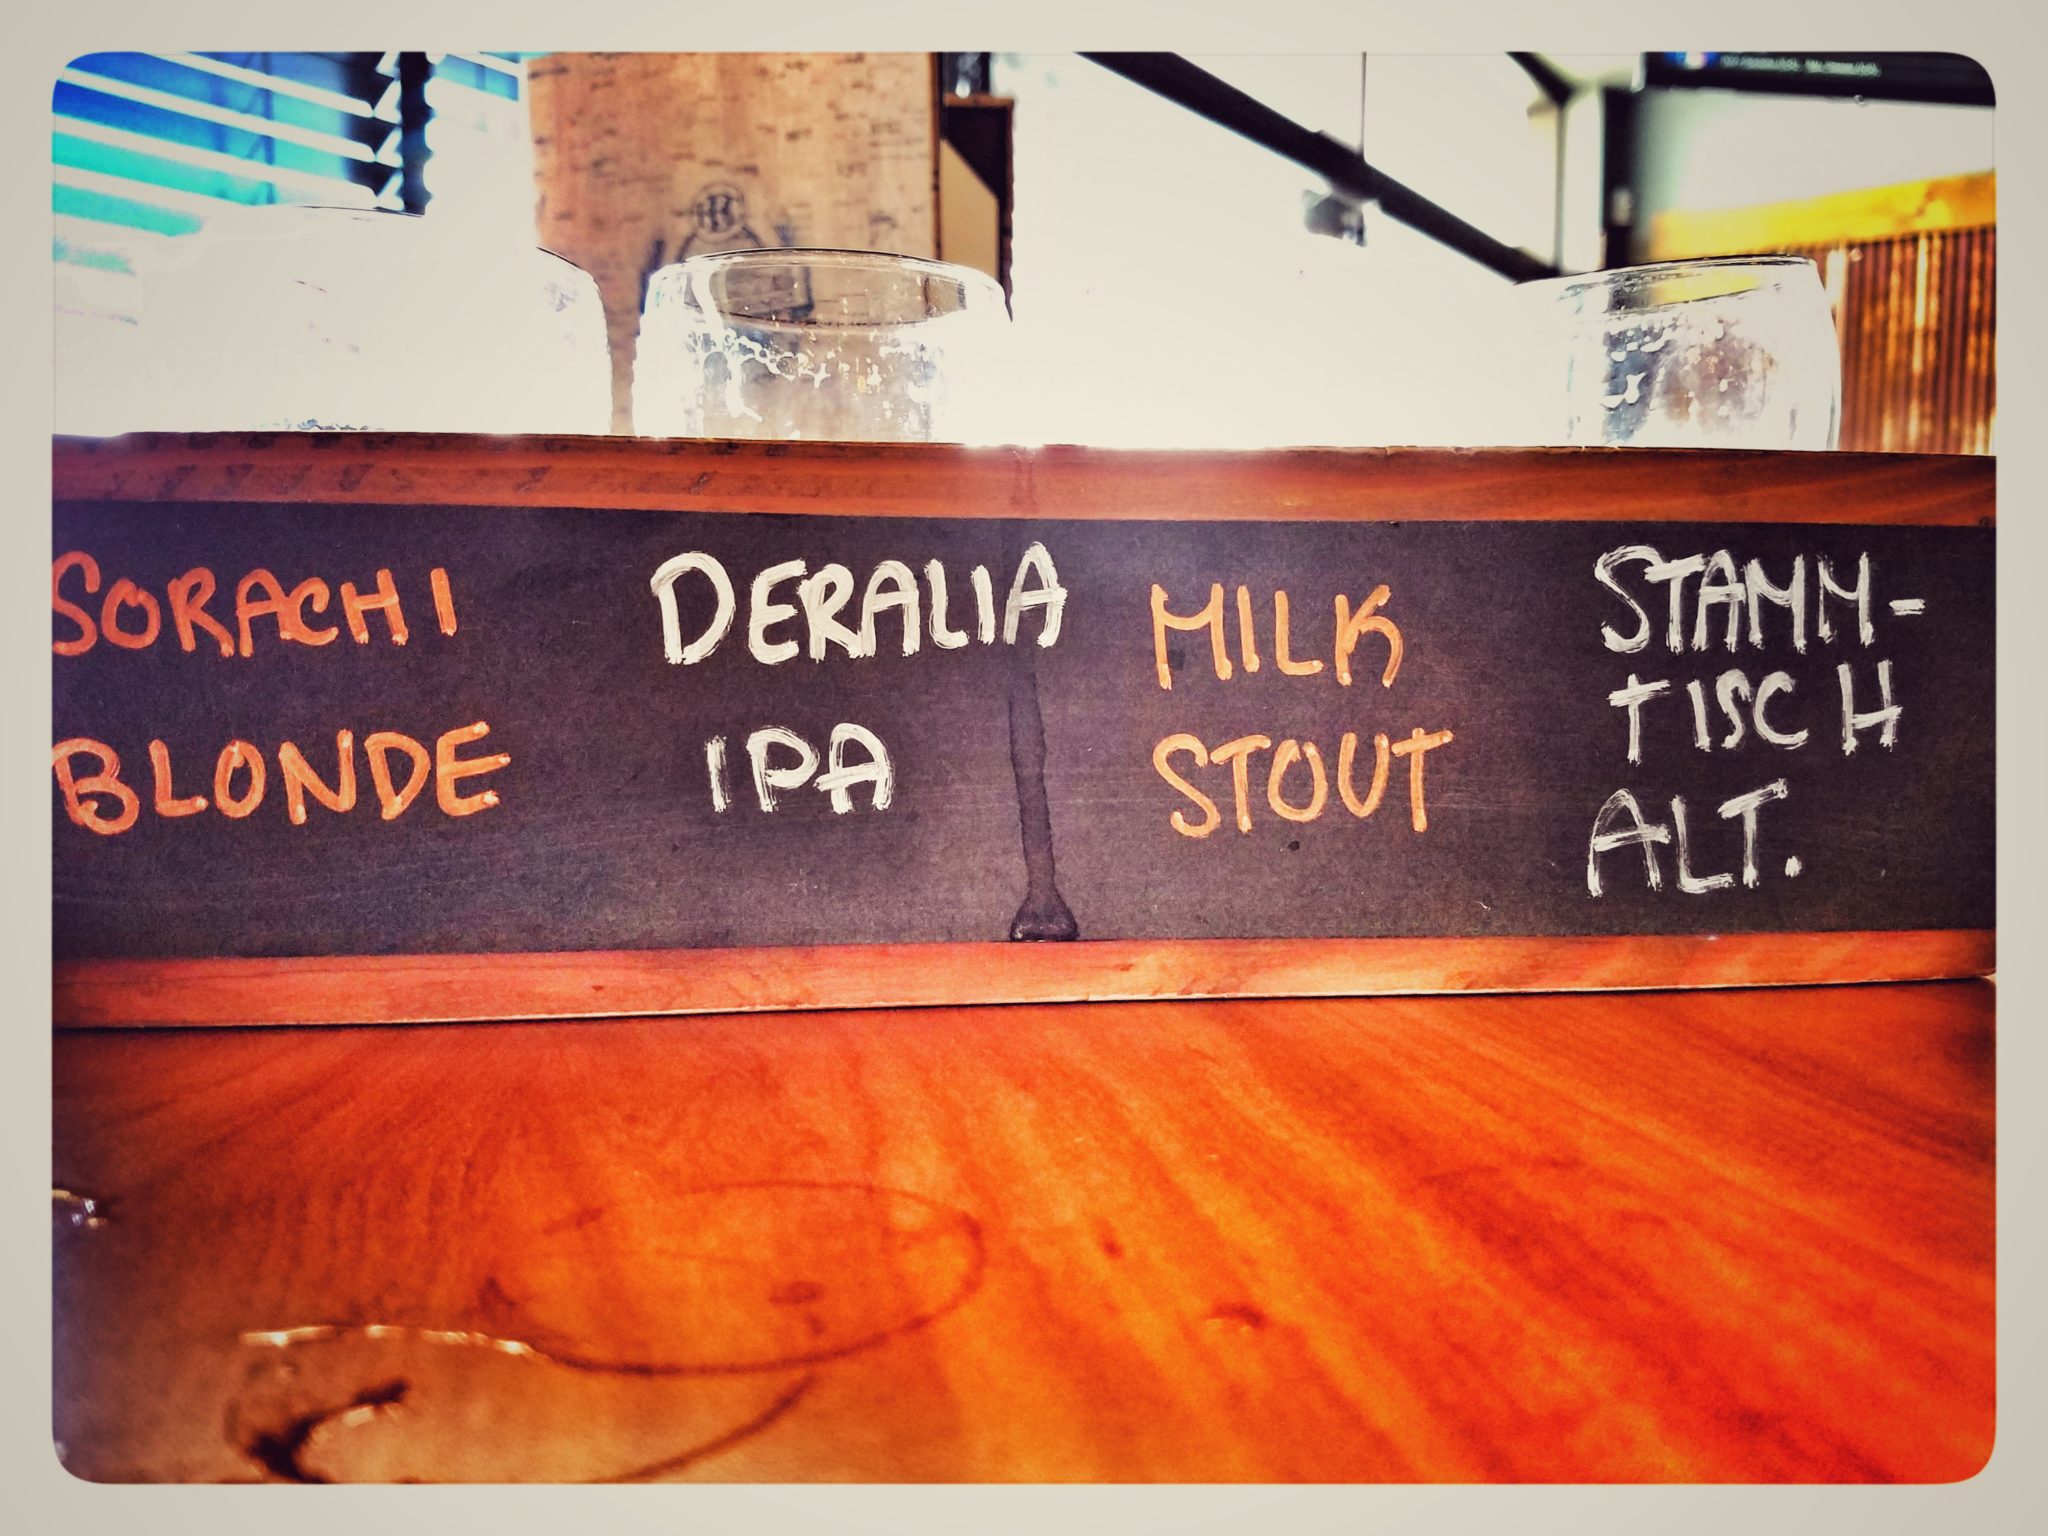 SORACHI
BLONDE
DERALIA
IPA
MILK
STOUT
STAMM-
TISCH
ALT.